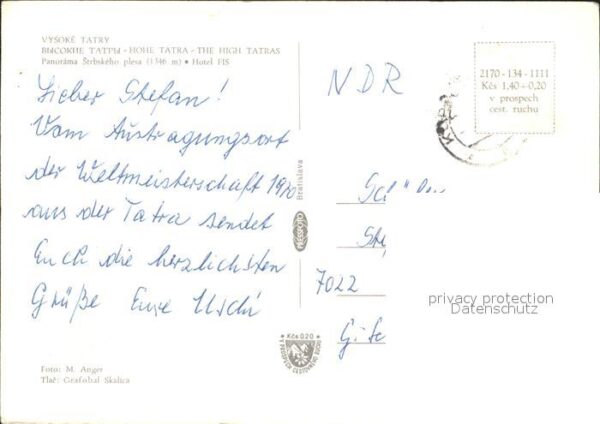 VYSOKÉ TATRY
ВЫСОКИЕ ТАТРЫ - HOHE TATRA - THE HIGH TATRAS
Panoráma Štrbského plesa (1346 m) • Hotel FIS
Lieber Stefan!
Vom Austragungsort
der Weltmeisterschaft 1970
aus der Tatra sendet
Euch die herzlichsten
Grüße Eure Uschi
Foto: M. Anger
Tlač: Grafobal Skalica
Bratislava
PRESSFOTO
Kčs 0,20
V PROSPECH CESTOVNÉHO RUCHU
NDR
2170 - 134 - 1111
Kčs 1,40 + 0,20
v prospech
cest. ruchu
7022
privacy protection
Datenschutz